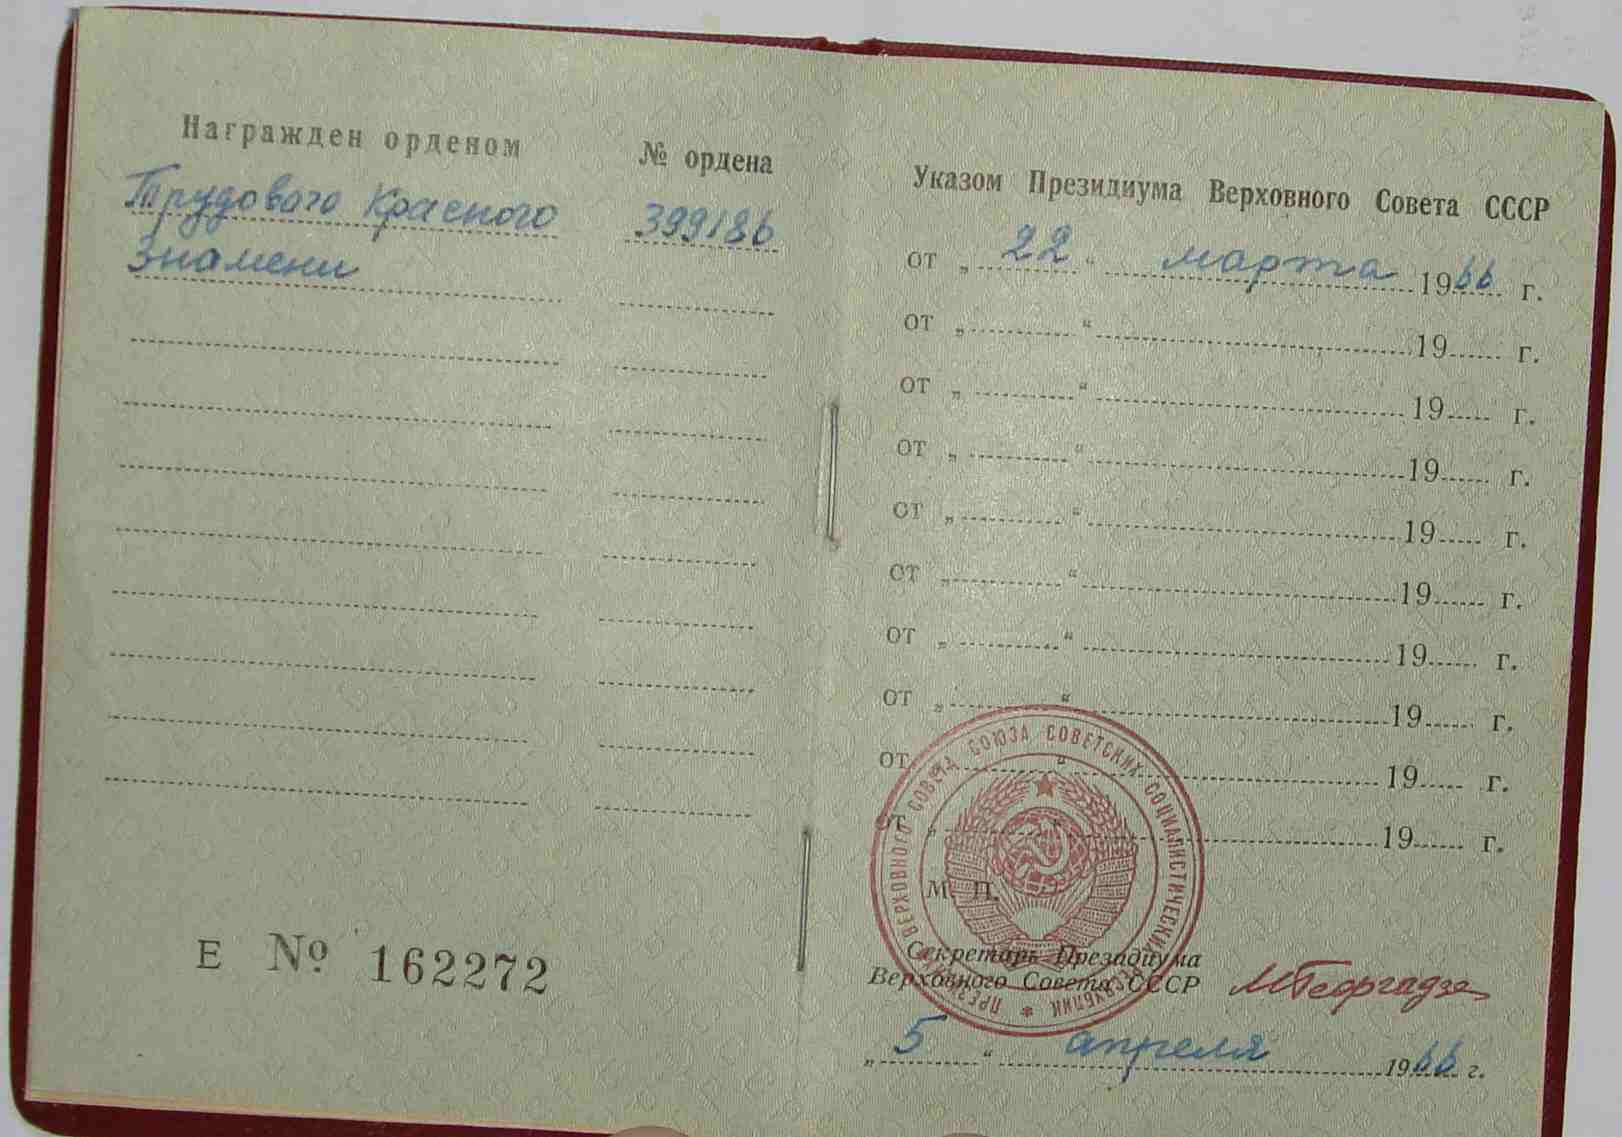 Награжден орденом
№ ордена
Трудового Красного 399186
Знамени
Е № 162272
Указом Президиума Верховного Совета СССР
от „22“ марта 1966 г.
от „ “ 19 г.
от „ “ 19 г.
от „ “ 19 г.
от „ “ 19 г.
от „ “ 19 г.
от „ “ 19 г.
от „ “ 19 г.
от „ “ 19 г.
от „ “ 19 г.
ПРЕЗИДИУМ ВЕРХОВНОГО СОВЕТА СОЮЗА СОВЕТСКИХ СОЦИАЛИСТИЧЕСКИХ РЕСПУБЛИК *
М. П.
Секретарь Президиума
Верховного Совета СССР МГеоргадзе
„5“ апреля 1966 г.